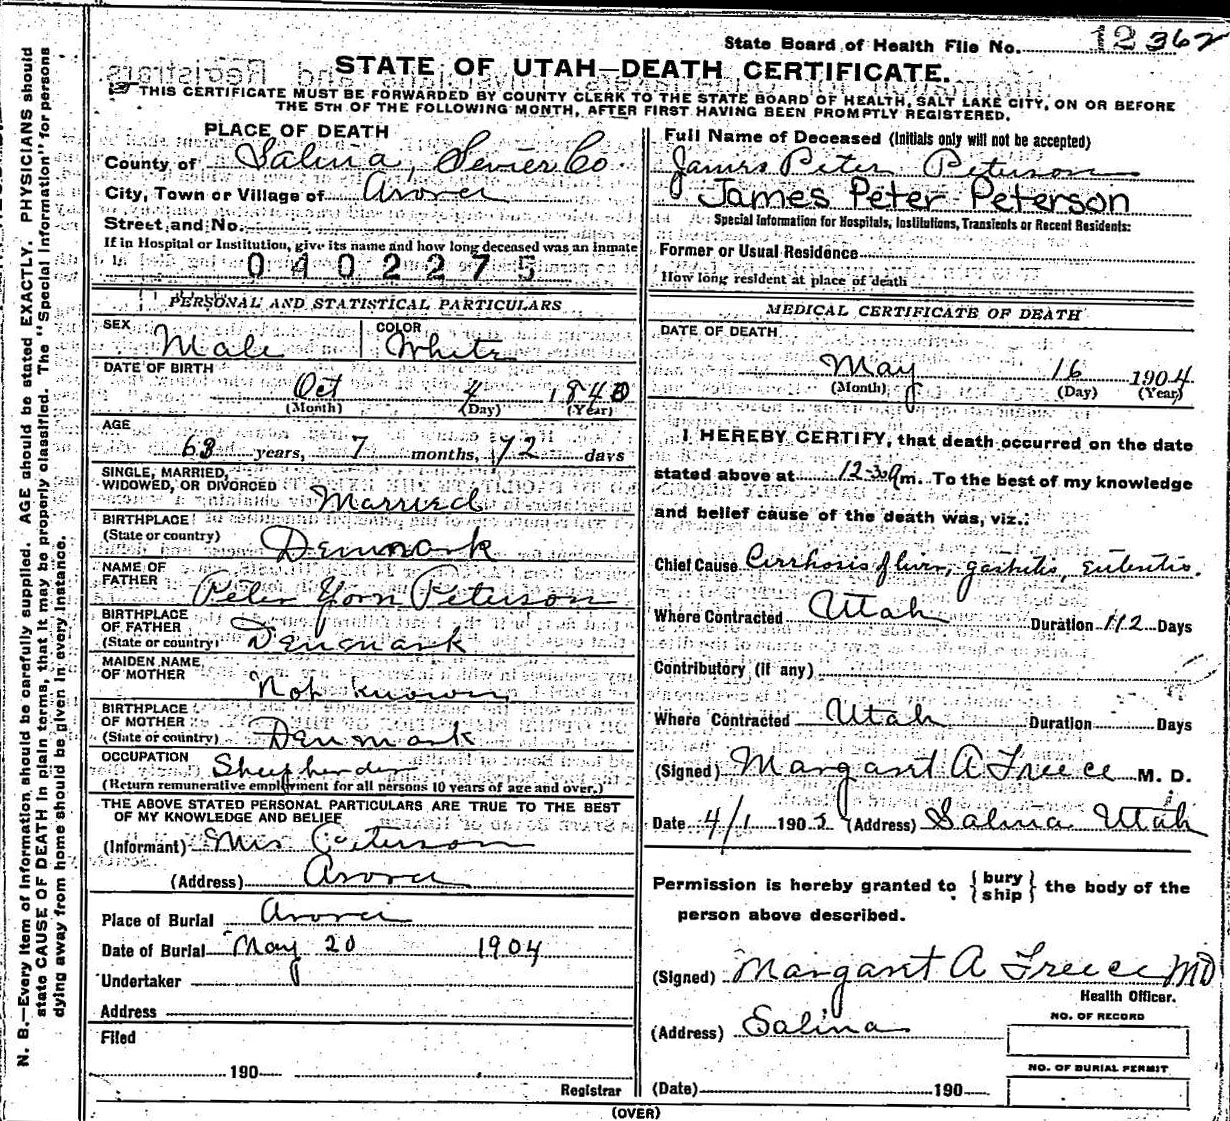 State Board of Health File No. 12362
STATE OF UTAH—DEATH CERTIFICATE.
THIS CERTIFICATE MUST BE FORWARDED BY COUNTY CLERK TO THE STATE BOARD OF HEALTH, SALT LAKE CITY, ON OR BEFORE
THE 5TH OF THE FOLLOWING MONTH, AFTER FIRST HAVING BEEN PROMPTLY REGISTERED.
PLACE OF DEATH
County of Salina, Sevier Co.
City, Town or Village of Arora
Street and No.
If in Hospital or Institution, give its name and how long deceased was an inmate
0402275
PERSONAL AND STATISTICAL PARTICULARS
SEX Male COLOR White
DATE OF BIRTH
Oct 4 1840
(Month) (Day) (Year)
AGE
63 years, 7 months, 12 days
SINGLE, MARRIED,
WIDOWED, OR DIVORCED Married
BIRTHPLACE
(State or country) Denmark
NAME OF
FATHER Peter Yorn Peterson
BIRTHPLACE
OF FATHER
(State or country) Denmark
MAIDEN NAME
OF MOTHER Not known
BIRTHPLACE
OF MOTHER
(State or country) Denmark
OCCUPATION Sheepherder
(Return remunerative employment for all persons 10 years of age and over.)
THE ABOVE STATED PERSONAL PARTICULARS ARE TRUE TO THE BEST
OF MY KNOWLEDGE AND BELIEF
(Informant) Mrs Peterson
(Address) Arora
Place of Burial Arora
Date of Burial May 20 1904
Undertaker
Address
Filed
190
Registrar
Full Name of Deceased (Initials only will not be accepted)
James Peter Peterson
James Peter Peterson
Special Information for Hospitals, Institutions, Transients or Recent Residents:
Former or Usual Residence
How long resident at place of death
MEDICAL CERTIFICATE OF DEATH
DATE OF DEATH
May 16 1904
(Month) (Day) (Year)
I HEREBY CERTIFY, that death occurred on the date
stated above at 12-30 a m. To the best of my knowledge
and belief cause of the death was, viz.:
Chief Cause Cirrhosis of liver, gastritis,
Where Contracted Utah Duration 112 Days
Contributory (if any)
Where Contracted Utah Duration Days
(Signed) Margaret A Freece M. D.
Date 4/1 1905 (Address) Salina Utah
Permission is hereby granted to { bury ship } the body of the
person above described.
(Signed) Margaret A Freece MD
Health Officer.
(Address) Salina
NO. OF RECORD
NO. OF BURIAL PERMIT
(Date) 190
(OVER)
N. B.—Every item of information should be carefully supplied. AGE should be stated EXACTLY. PHYSICIANS should
state CAUSE OF DEATH in plain terms, that it may be properly classified. The "Special Information" for persons
dying away from home should be given in every instance.